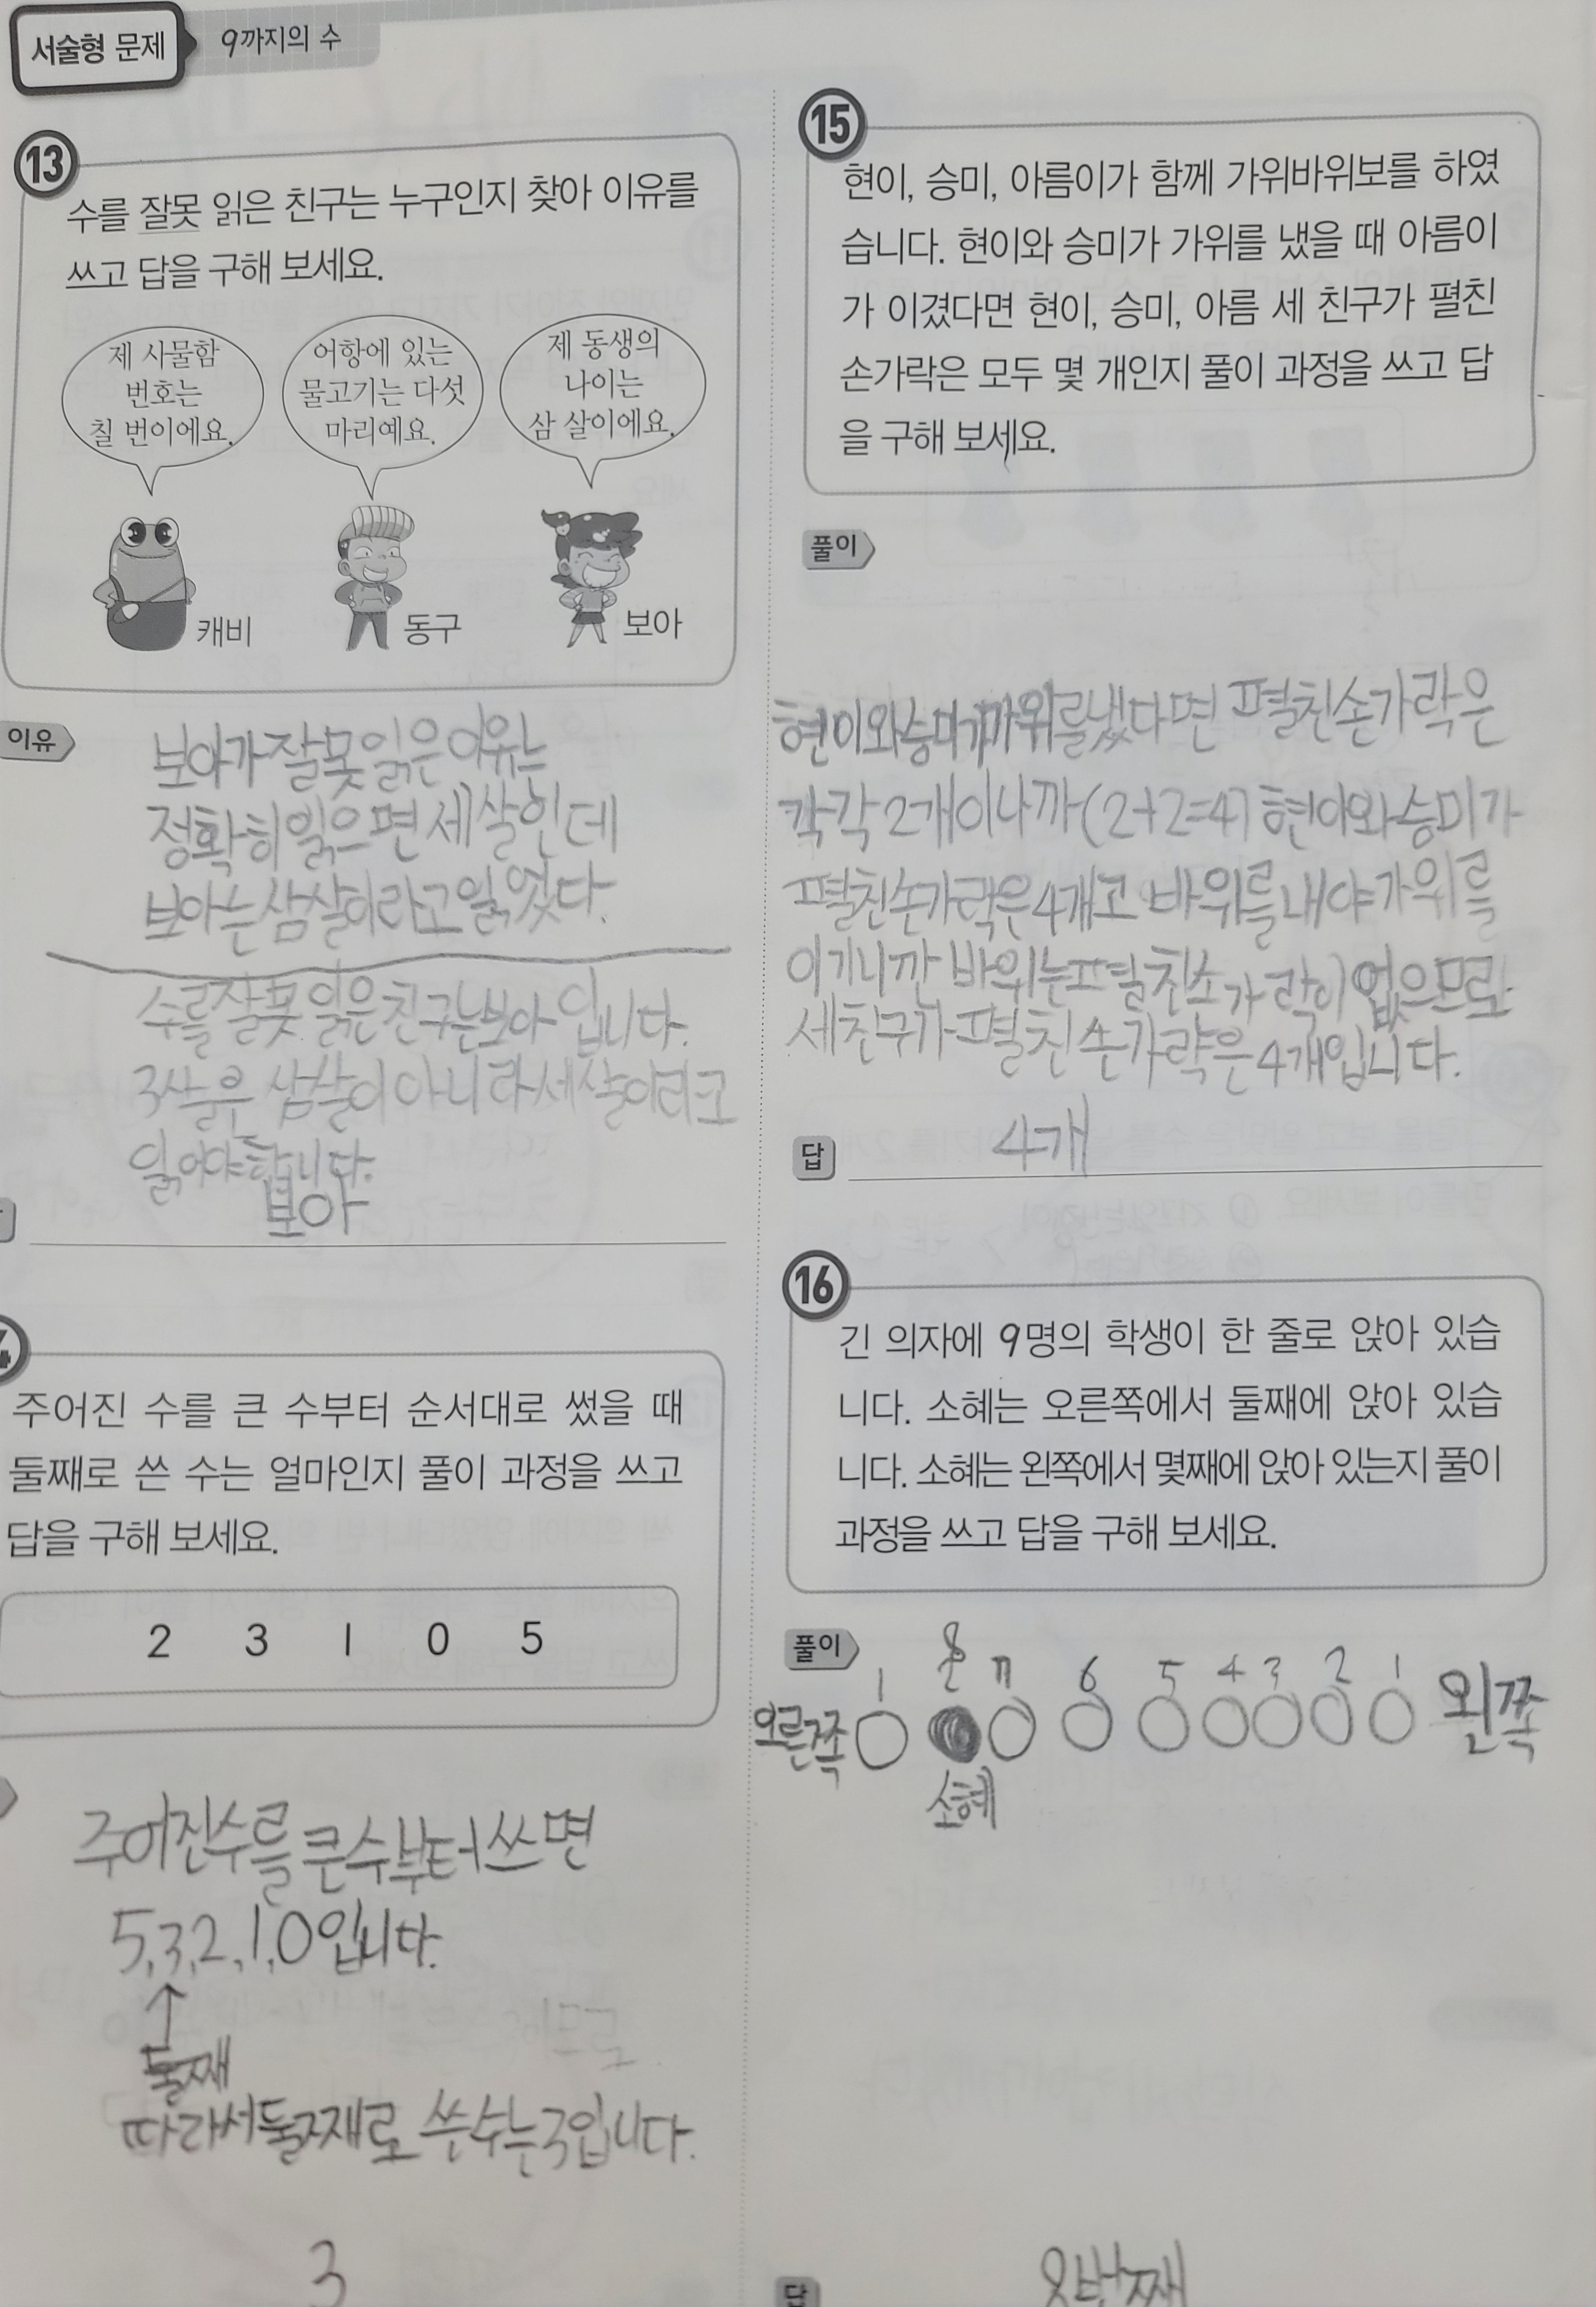 서술형 문제
9까지의 수
13
수를 잘못 읽은 친구는 누구인지 찾아 이유를
쓰고 답을 구해 보세요.
제 사물함
번호는
칠 번이에요.
어항에 있는
물고기는 다섯
마리예요.
제 동생의
나이는
삼 살이에요.
캐비
동구
보아
이유
보아가 잘못 읽은 이유는
정확히 읽으면 세 살인데
보아는 삼살이라고 읽었다.
수를 잘못 읽은 친구는 보아 입니다.
3살은 삼살이 아니라 세살이라고
읽어야 합니다.
보아
주어진 수를 큰 수부터 순서대로 썼을 때
둘째로 쓴 수는 얼마인지 풀이 과정을 쓰고
답을 구해 보세요.
2 3 1 0 5
주어진 수를 큰 수부터 쓰면
5, 3, 2, 1, 0 입니다.
둘째
따라서 둘째로 쓴 수는 3입니다.
3
15
현이, 승미, 아름이가 함께 가위바위보를 하였
습니다. 현이와 승미가 가위를 냈을 때 아름이
가 이겼다면 현이, 승미, 아름 세 친구가 펼친
손가락은 모두 몇 개인지 풀이 과정을 쓰고 답
을 구해 보세요.
풀이
현이와 승미가 가위를 냈다면 펼친 손가락은
각각 2개이니까 (2+2=4) 현이와 승미가
펼친 손가락은 4개고 바위를 내야 가위를
이기니깐 바위는 펼친 손가락이 없으므로
세 친구가 펼친 손가락은 4개입니다.
답
4개
16
긴 의자에 9명의 학생이 한 줄로 앉아 있습
니다. 소혜는 오른쪽에서 둘째에 앉아 있습
니다. 소혜는 왼쪽에서 몇째에 앉아 있는지 풀이
과정을 쓰고 답을 구해 보세요.
풀이
1 8 7 6 5 4 3 2 1
오른쪽
왼쪽
소혜
답
8번째